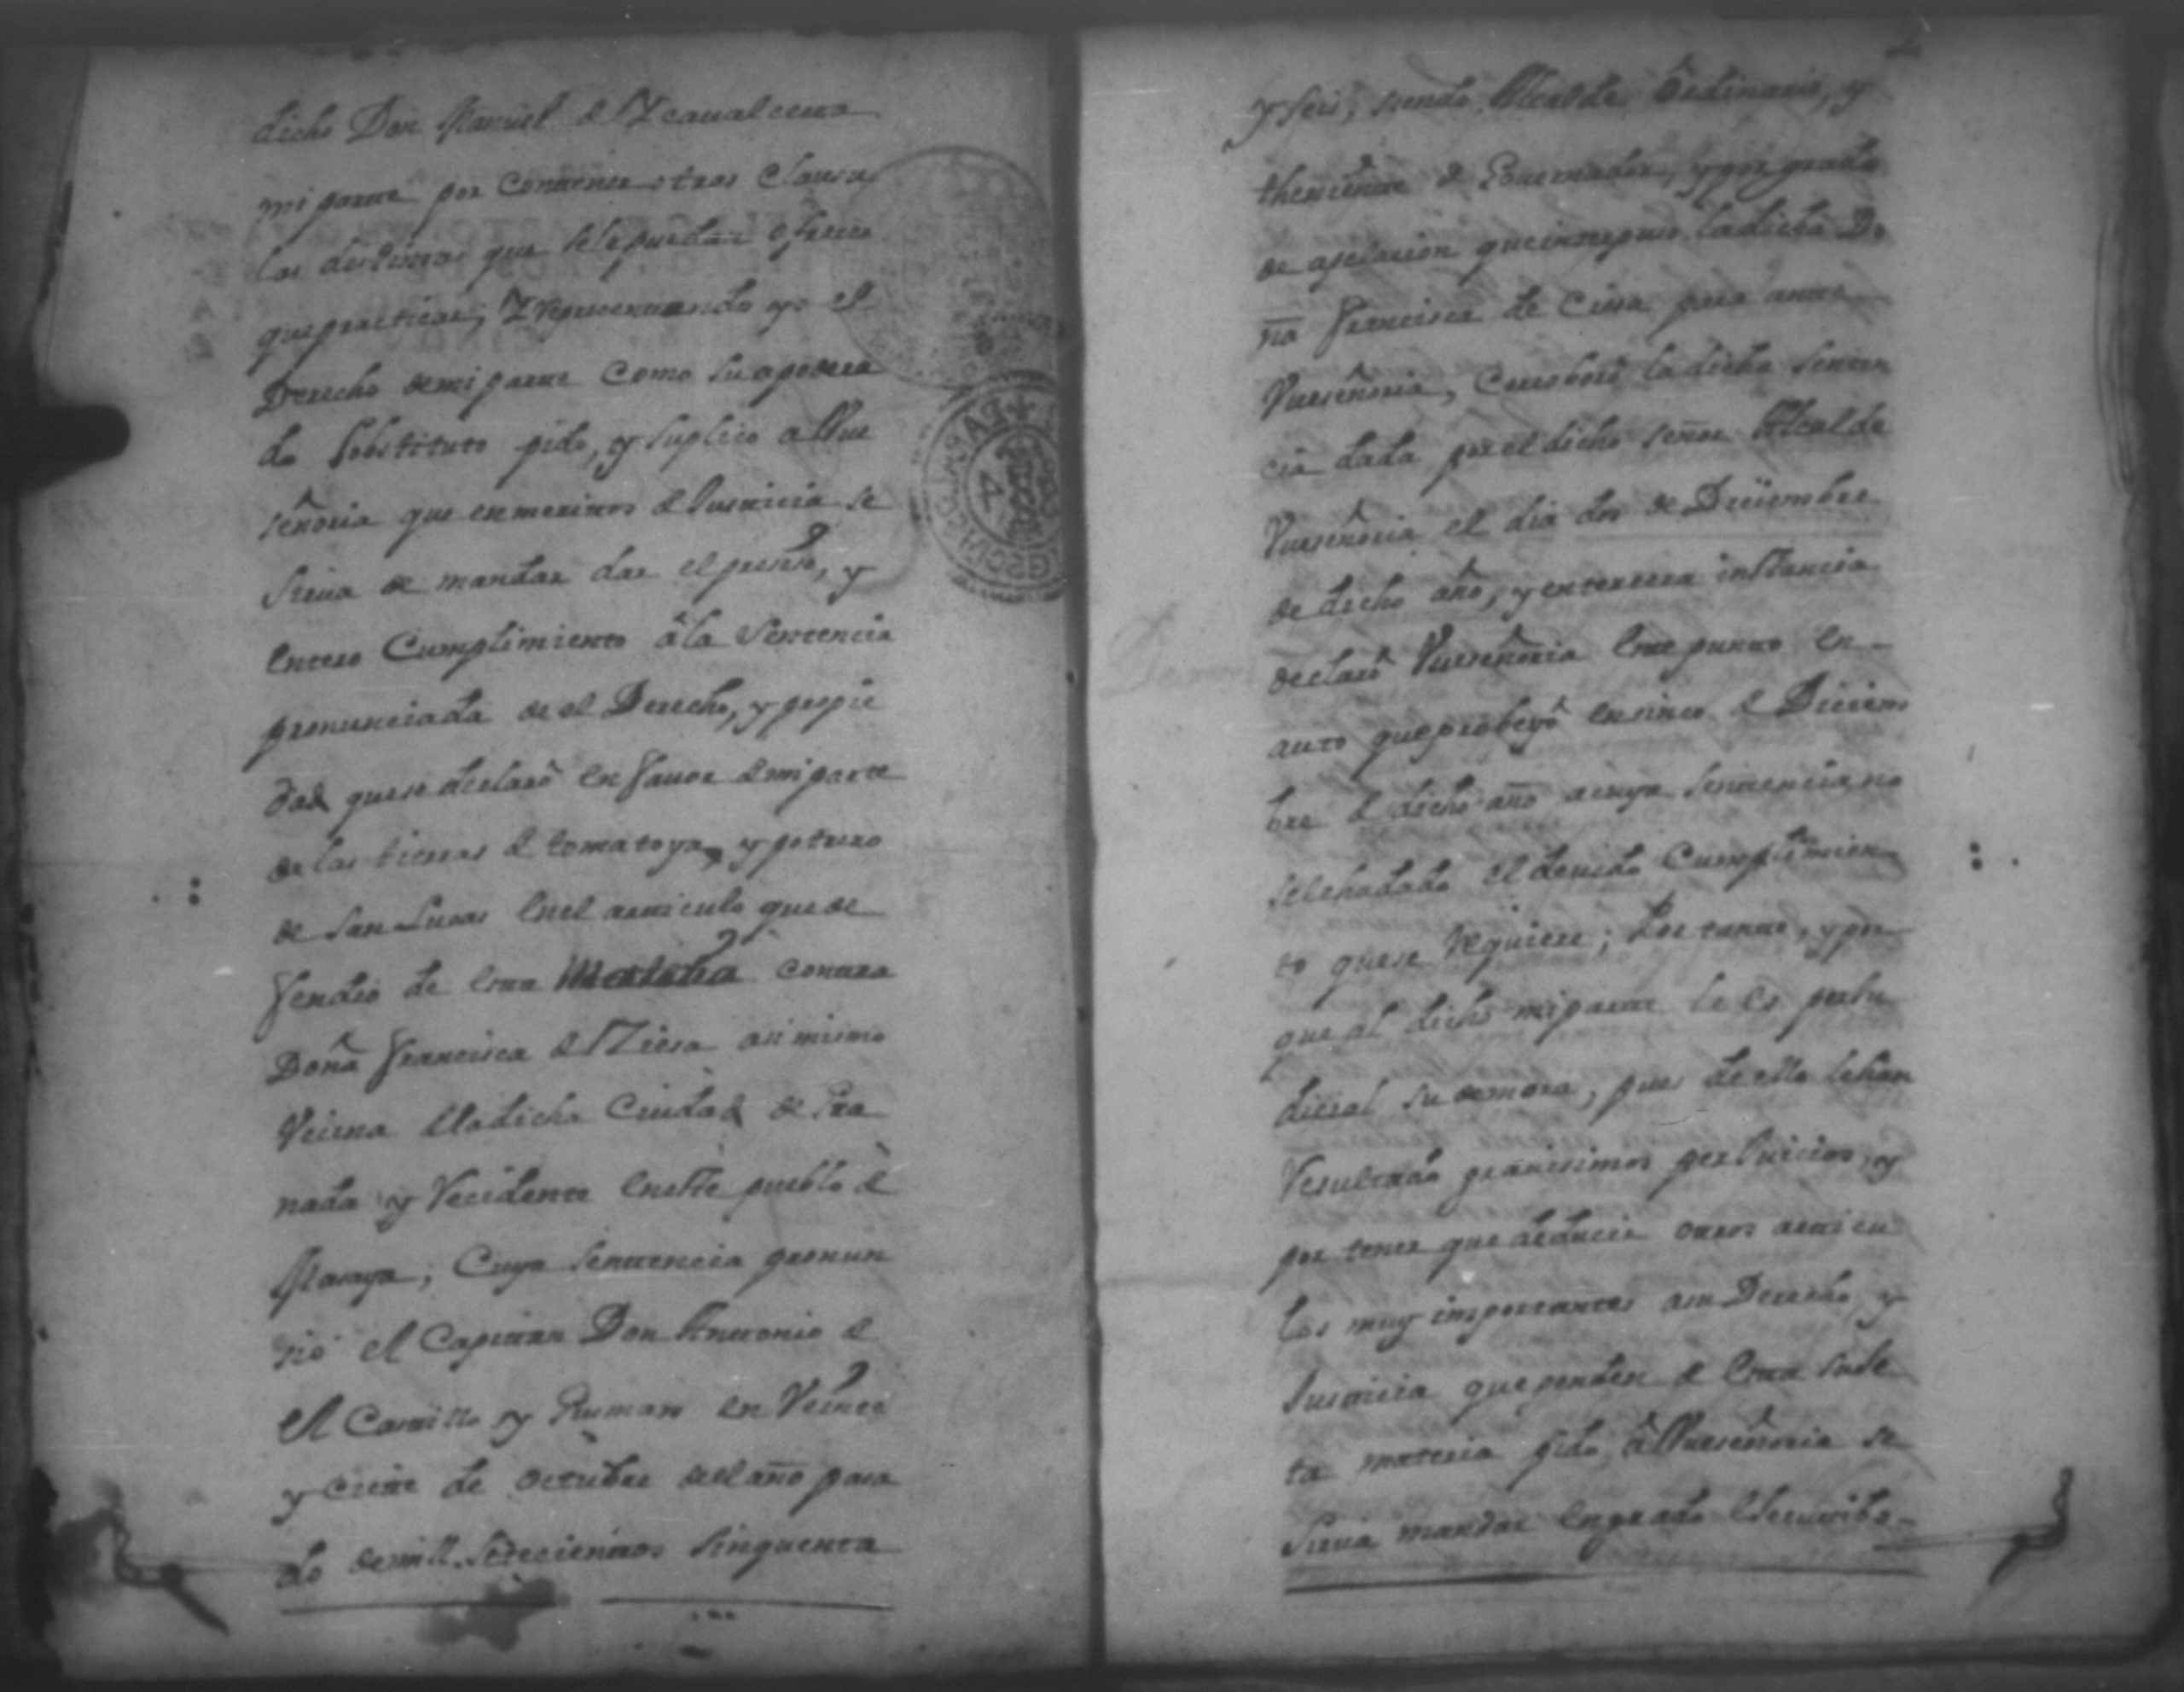 dicho Don Manuel de Ycaualceta
mi parte por contener otras Clausu
las distintas que sele puedan ofrecer
que practicar; Y representando yo el
Derecho demi parte como su apodera
do Sobstituto pido, y suplico a Vue
señoria que enmeritos de Justicia se
sirua de mandar dar el , y
entero Cumplimiento â la Sentencia
pronunciada de el Derecho, y propie
dad quese declarô en fauor demi parte
de las tierras de tomatoya, y potrero
de San Lucas enel articulo que de
fendio de esta contra
Doña Francisca de Ziesa asi mismo
Vecina dela dicha Ciudad de Gra
nada y Recidente eneste pueblo de
Masaya; Cuya sentencia pronun
siô el Capitan Don Antonio de
el Castillo y Guman en Veinte
y ciete de octubre deel año pasa
do demill setecientos sinquenta
y seis, siendo Alcalde Ordinario, y
theniente de Gouernador, y por grado
de apelacion que interpuso la dicha Do
ña Francisca de Ciesa para ante
Vueseñoria, Corroborô la dicha Senten
cia dada por el dicho señor Alcalde
Vueseñoria el dia dos de Diciembre
de dicho año, y entersera instancia
declarô Vueseñoria este punto en
auto que probeyô ensinco de Diciem
bre de dicho año acuya sentencia no
sele hadado el deuido Cumplimien
to quese requiere; Por tanto, y por
que al dicho mi parte le es perju
dicial su demora, pues de ello le han
resultado grauisimos perJuicios, y
por tener que deducir otros articu
los muy importantes asu Derecho, y
Justicia que penden de esta suse
ta materia pido â Vueseñoria se
sirua mandar engrado